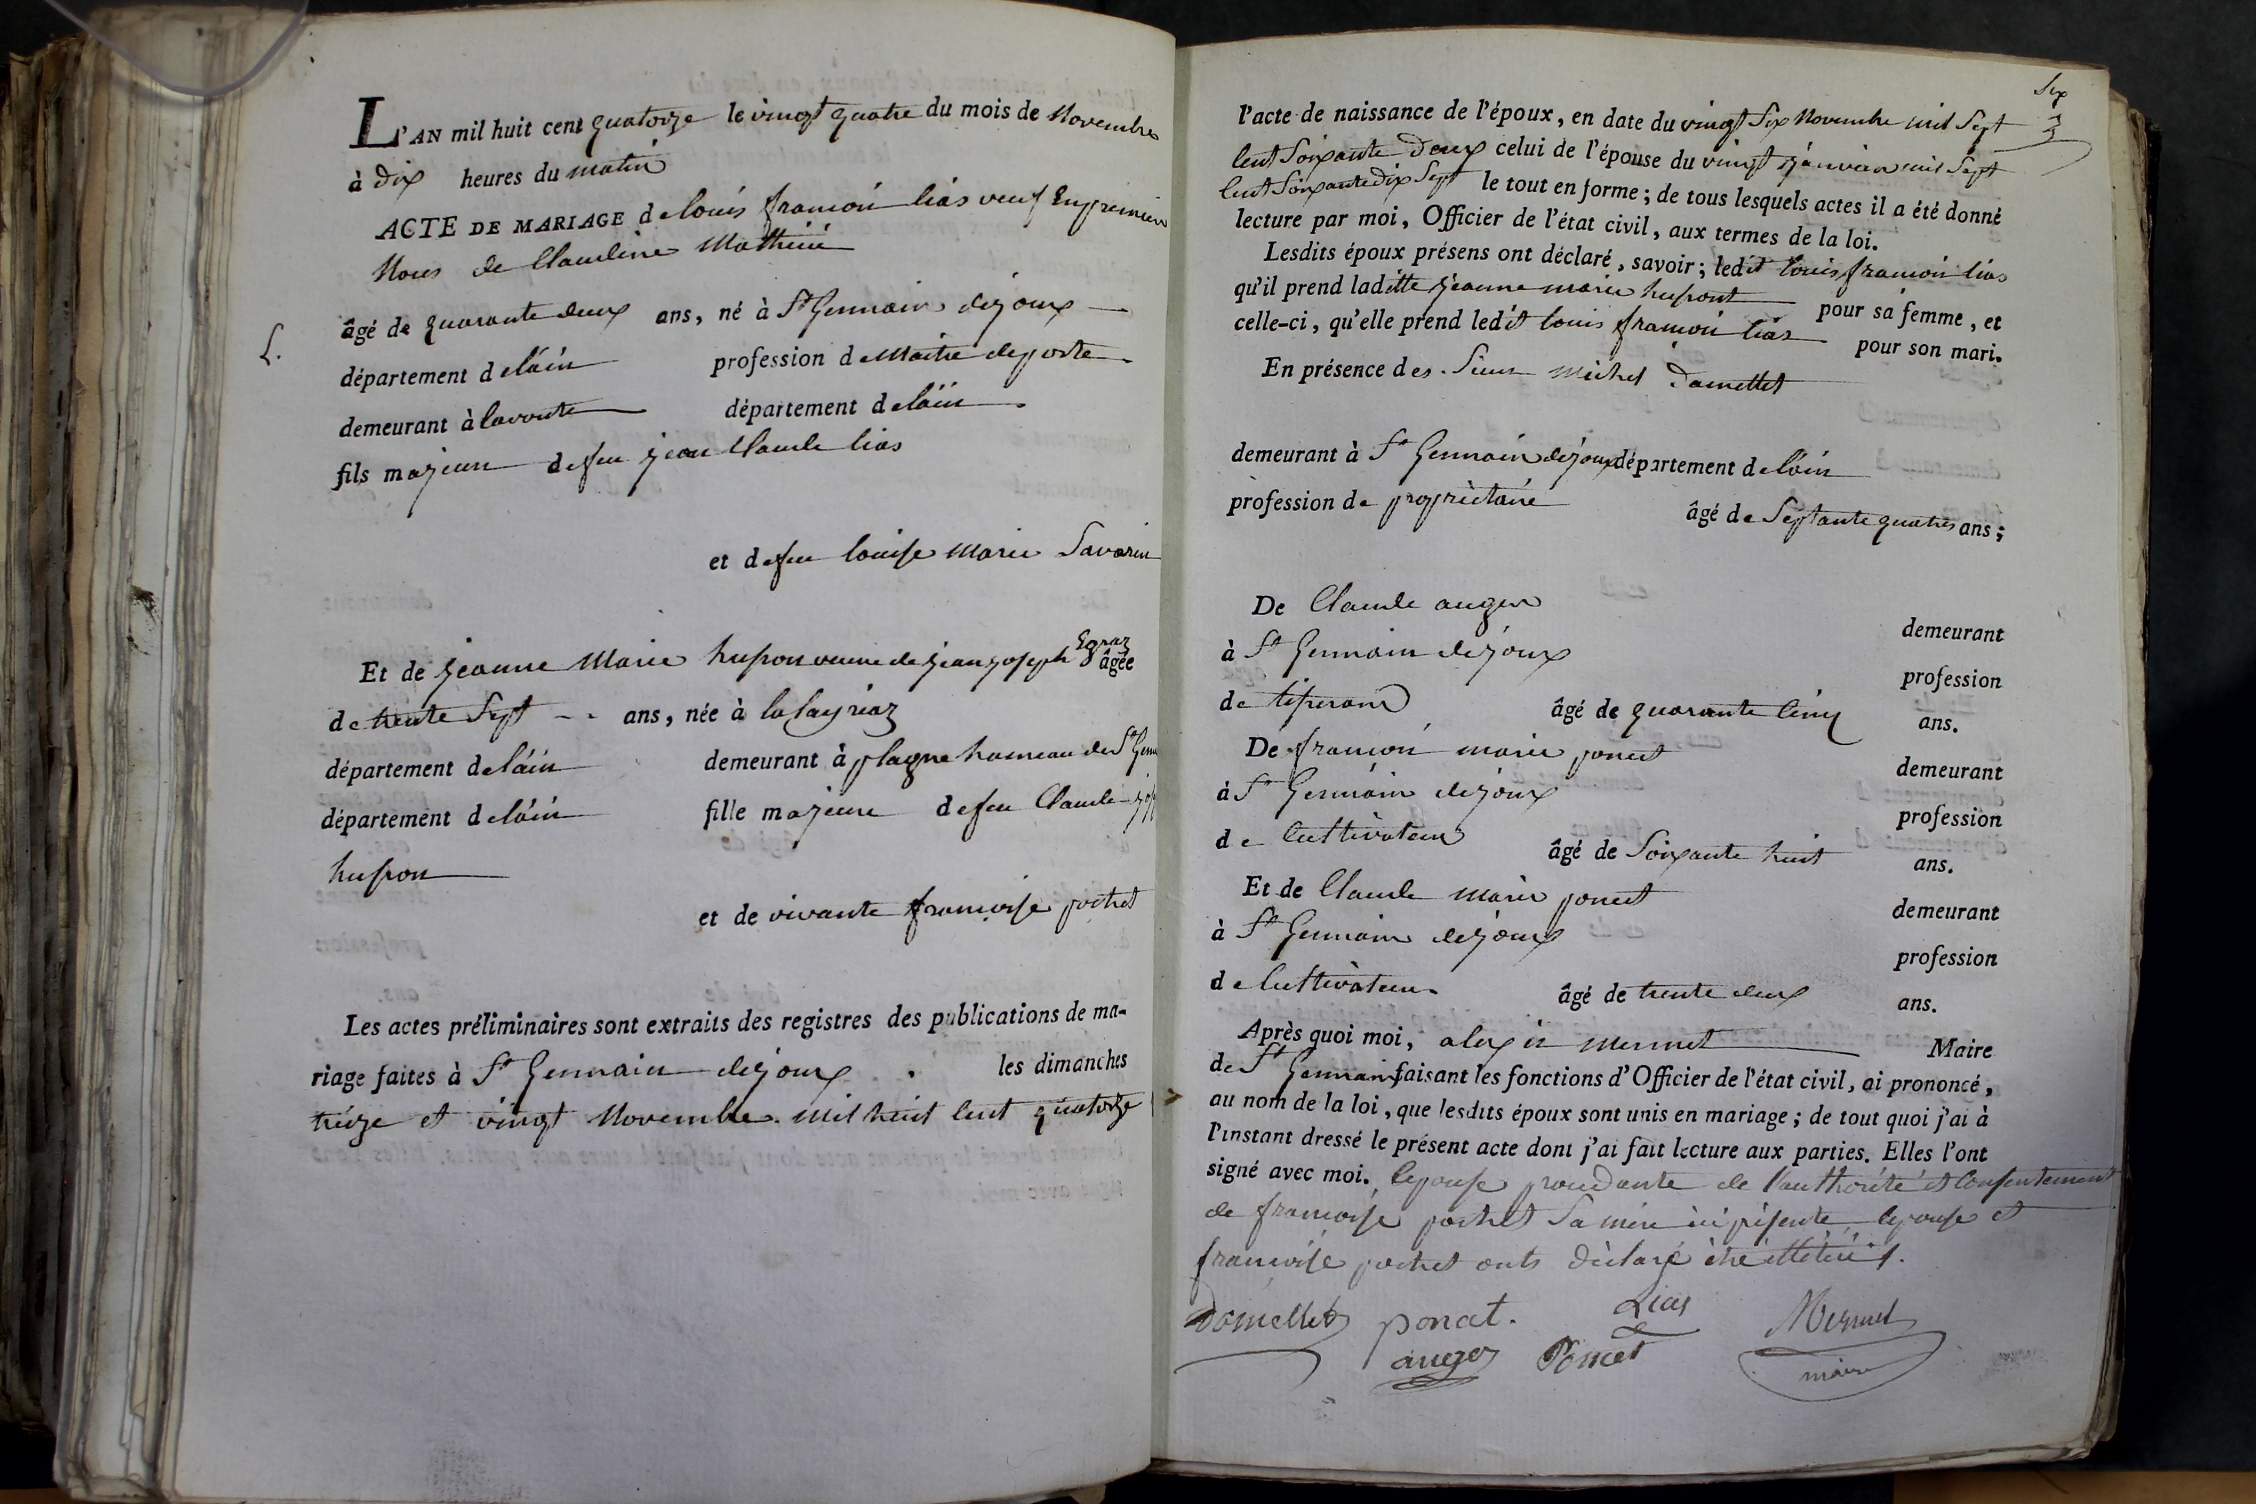 L'AN mil huit cent quatorze le vingt quatre du mois de Novembre
à dix heures du matin
ACTE DE MARIAGE de louis françoi lias veuf En premier
Noces de Claudine Mathieu
L.
âgé de quarante deux ans, né à St Germain dejoux
département de lain profession de Maitre de poste
demeurant à lavoute département de lain
fils majeur de feu jean Claude lias
et de feu louise Marie Savarin
Et de jeanne Marie hugon veuve de jean joseph Egraz âgée
de trente Sept ans, née à la layriaz
département de lain demeurant à plagne hameau de St Germ
département de lain fille majeure de feu Claude jos
hugon
et de vivante françoise pochet
Les actes préliminaires sont extraits des registres des publications de ma-
riage faites à St Germain dejoux les dimanches
treize et vingt Novembre mil huit cent quatorze
Six
l'acte de naissance de l'époux, en date du vingt Six Novembre mil Sept
cent Soixante Deux celui de l'épouse du vingt janvier mil Sept
cent Soixante dix Sept le tout en forme; de tous lesquels actes il a été donné
lecture par moi, Officier de l'état civil, aux termes de la loi.
Lesdits époux présens ont déclaré, savoir; ledit louis françoi lias
qu'il prend laditte jeanne marie hugont pour sa femme, et
celle-ci, qu'elle prend ledit louis françoi lias pour son mari.
En présence des Sieur michel Damellet
demeurant à St Germain dejoux département de lain
profession de propriètaire âgé de Septante quatres ans;
De Claude auger demeurant
à St Germain dejoux profession
de tisserand âgé de quarante Cinq ans.
De françoi marie poncet demeurant
à St Germain dejoux profession
de Cultivateur âgé de Soixante huit ans.
Et de Claude marie poncet demeurant
à St Germain dejoux profession
de Cultivateur âgé de trente deux ans.
Après quoi moi, alexis mermet Maire
de St Germain faisant les fonctions d'Officier de l'état civil, ai prononcé,
au nom de la loi, que lesdits époux sont unis en mariage; de tout quoi j'ai à
l'instant dressé le présent acte dont j'ai fait lecture aux parties. Elles l'ont
signé avec moi. lepouse procedante de l'authorité et Consentement
de françoise pochet Sa mère ici présente lepouse et
françoise pochet onts déclaré être illétérés.
Damellet poncet. Lias Mermet
auger Poncet maire